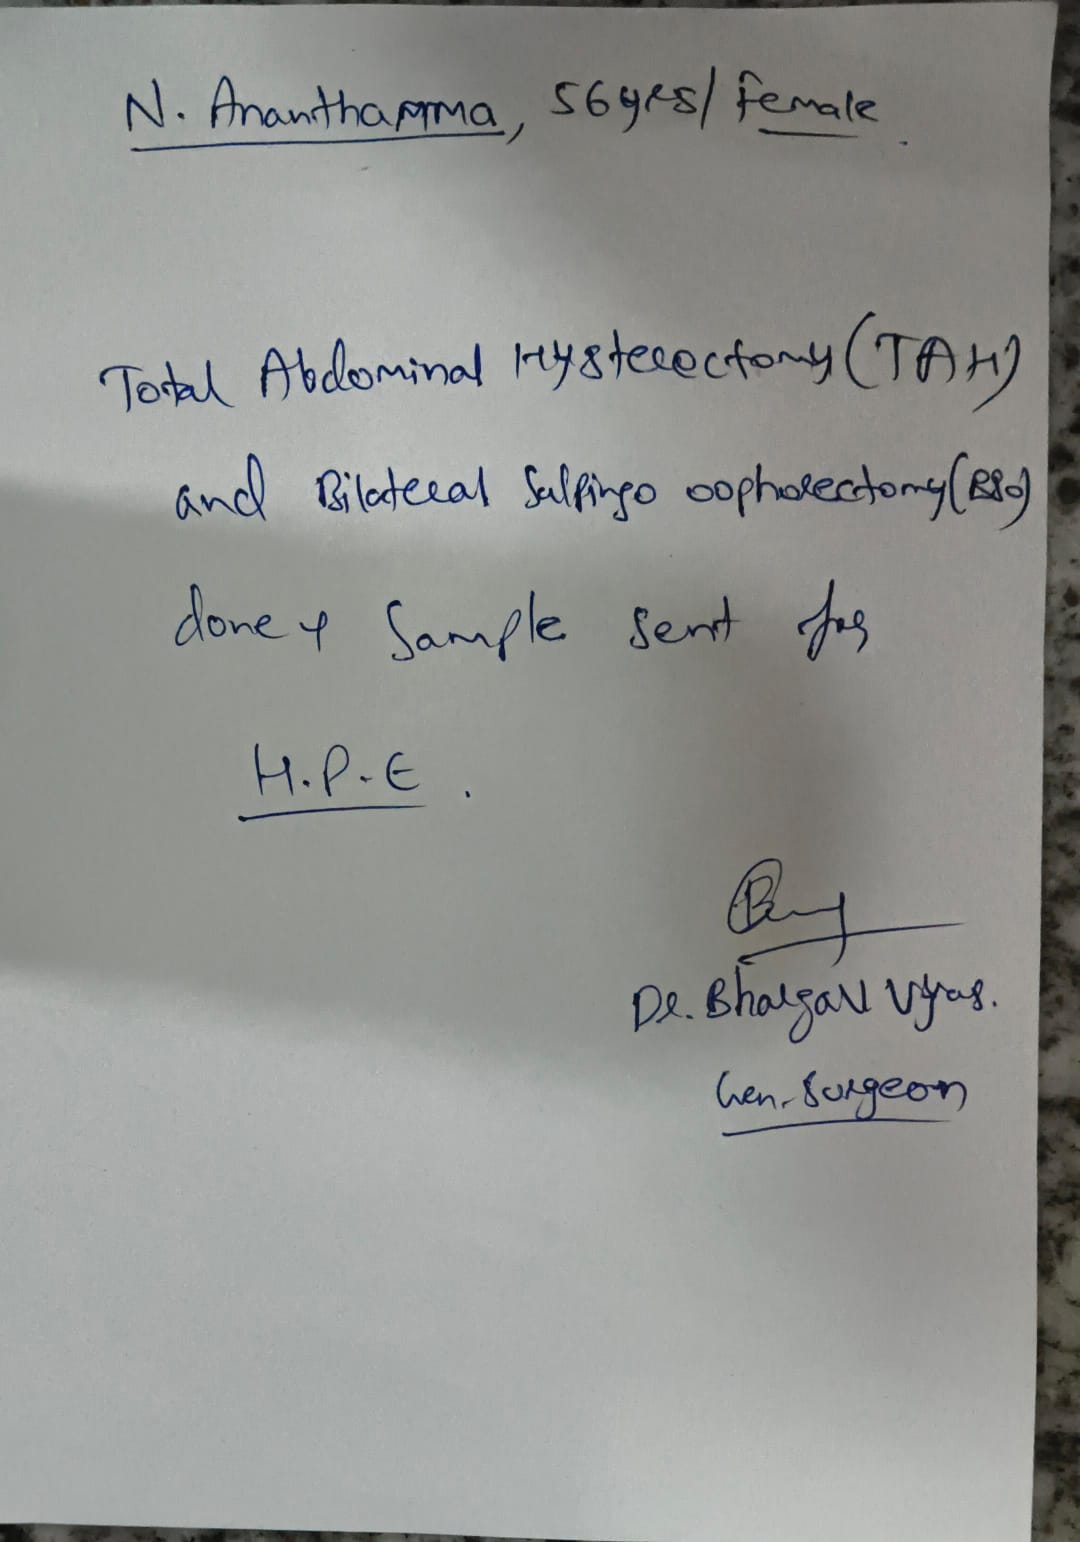 N. Ananthamma, 56yrs/ female.
Total Abdominal Hysterectomy (TAH)
and Bilateral Salpingo oophorectomy (BSO)
done & Sample sent for
H.P.E.
Dr. Bhargav Vyas.
Gen. Surgeon